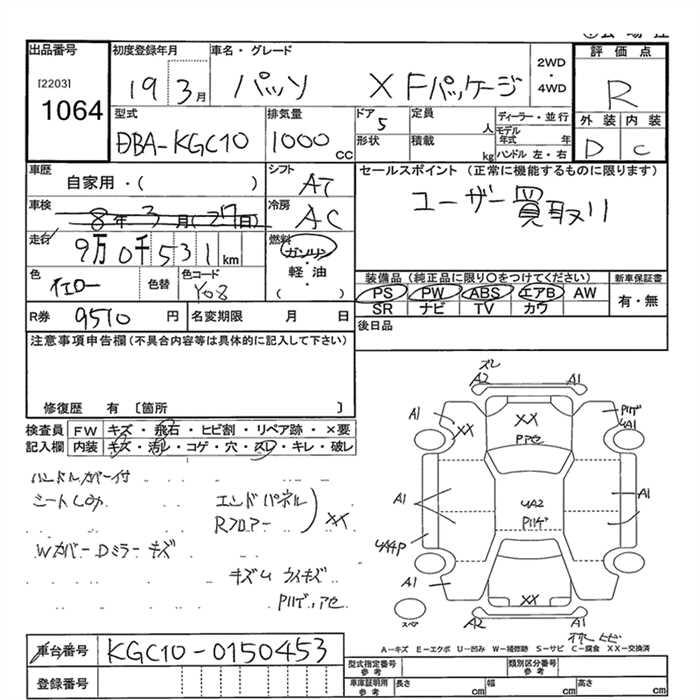 出品番号
[2203]
1064
初度登録年月
19 3月
車名・グレード
パッソ X Fパッケージ
2WD
・
4WD
評価点
R
外装 内装
D C
型式
DBA-KGC10
排気量
1000 CC
ドア
5
形状
定員
人
積載
kg
ディーラー・並行
モデル年式 年
ハンドル 左・右
車歴
自家用・( )
シフト
AT
セールスポイント (正常に機能するものに限ります)
ユーザー買取り
車検
8年3月(27日)
冷房
AC
走行
9万0千531km
燃料
ガソリン
・
軽・油
( )
色
イエロー
色替
色コード
Y08
装備品(純正品に限り○をつけてください)
PS PW ABS エアB AW
SR ナビ TV カワ
新車保証書
有・無
R券 9510円
名変期限 月 日
後日品
注意事項申告欄(不具合内容等は具体的に記入して下さい)
修復歴 有 〔箇所 〕
検査員記入欄
FW キズ・飛石・ヒビ割・リペア跡・×要
内装 キズ・汚レ・コゲ・穴・スレ・キレ・破レ
ハンドルカバー付
シート
エンドパネル
Rフロアー
XX
Wカバー Dミラーキズ
キズ
ズレ
A2 A1
A1 XX XX A1
A1 4A2 A1
4A4P
A1 XX
A2 A1
スペア
ヒビ
A-キズ E-エクボ U-凹み W-補修跡 S-サビ C-腐食 XX-交換済
車台番号 KGC10-0150453
登録番号
型式指定番号
参考
類別区分番号
参考
車庫証明用
参考
長さ cm 幅 cm 高さ cm